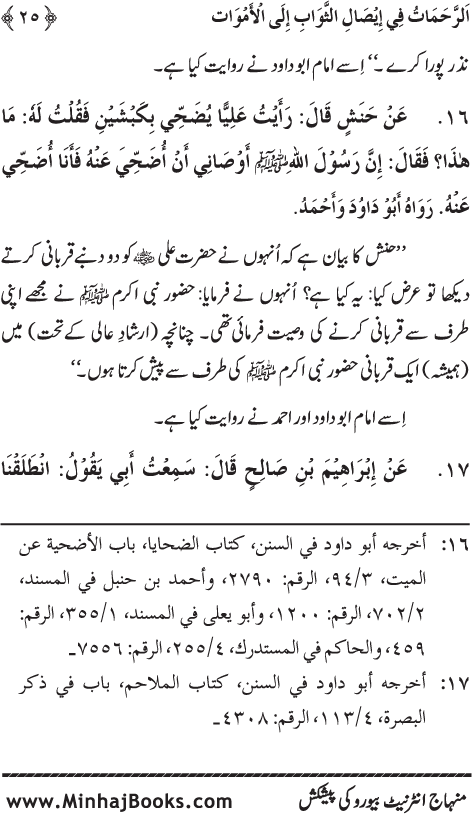 اَلرَّحَمَاتُ فِي إِيْصَالِ الثَّوَابِ إِلَى الْأَمْوَات ﴿ ٢٥ ﴾
نذر پورا کرے ۔‘‘ اِسے امام ابو داود نے روایت کیا ہے۔
١٦. عَنْ حَنَشٍ قَالَ: رَأَيْتُ عَلِيًّا يُضَحِّي بِكَبْشَيْنِ فَقُلْتُ لَهُ: مَا
هٰذَا؟ فَقَالَ: إِنَّ رَسُوْلَ اللهِ ﷺ أَوْصَانِي أَنْ أُضَحِّيَ عَنْهُ فَأَنَا أُضَحِّي
عَنْهُ. رَوَاهُ أَبُوْ دَاوُدَ وَأَحْمَدُ.
’’حنش کا بیان ہے کہ اُنہوں نے حضرت علی ؓ کو دو دنبے قربانی کرتے
دیکھا تو عرض کیا: یہ کیا ہے؟ اُنہوں نے فرمایا: حضور نبی اکرم ﷺ نے مجھے اپنی
طرف سے قربانی کرنے کی وصیت فرمائی تھی۔ چنانچہ (ارشادِ عالی کے تحت) میں
(ہمیشہ) ایک قربانی حضور نبی اکرم ﷺ کی طرف سے پیش کرتا ہوں۔‘‘
اِسے امام ابو داود اور احمد نے روایت کیا ہے۔
١٧. عَنْ إِبْرَاهِيْمَ بْنِ صَالِحٍ قَالَ: سَمِعْتُ أَبِي يَقُوْلُ: انْطَلَقْنَا
١٦: أخرجه أبو داود في السنن، كتاب الضحايا، باب الأضحية عن
الميت، ٣/٩٤، الرقم: ٢٧٩٠، وأحمد بن حنبل في المسند،
٢/٧٠٢، الرقم: ١٢٠٠، وأبو يعلى في المسند، ١/٣٥٥، الرقم:
٤٥٩، والحاكم في المستدرك، ٤/٢٥٥، الرقم: ٧٥٥٦۔
١٧: أخرجه أبو داود في السنن، كتاب الملاحم، باب في ذكر
البصرة، ٤/١١٣، الرقم: ٤٣٠٨۔
منہاج انٹرنیٹ بیورو کی پیشکش www.MinhajBooks.com